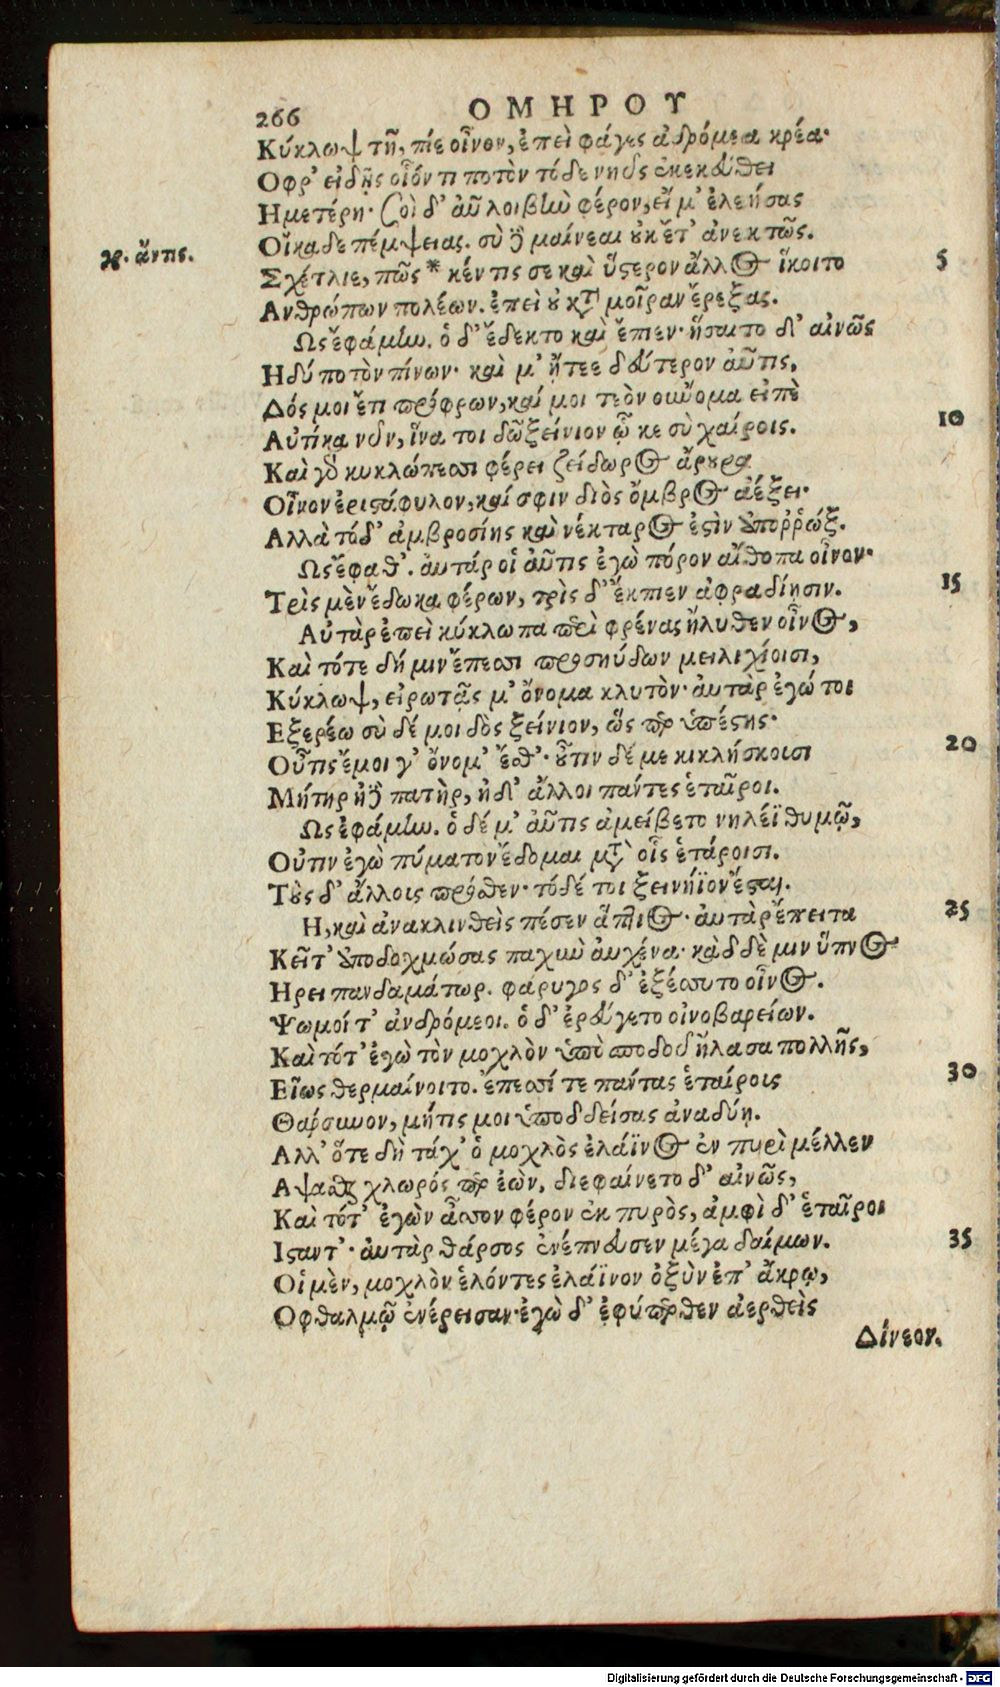 266 ΟΜΗΡΟΥ
Κύκλωψ τῆ, πίε οἶνον, ἐπεὶ φάγες ἀδρόμεα κρέα·
Οφρ' εἰδῇς οἷόν τι ποτὸν τόδε νηῦς ἐκεκεύθει
Ημετέρη· Σοὶ δ' αὖ λοιβὴν φέρον, εἴ μ' ἐλεήσας
Οἴκαδε πέμψειας. σὺ δὲ μαίνεαι οὐκ ἔτ' ἀνεκτῶς.
γρ. ἄντις.
Σχέτλιε, πῶς * κέν τις σε καὶ ὕστερον ἄλλος ἵκοιτο 5
Ανθρώπων πολέων. ἐπεὶ οὐ κατὰ μοῖραν ἔρεξας.
Ως ἐφάμην. ὁ δ' ἔδεκτο καὶ ἔπιεν· ἥσατο δ' αἰνῶς
Ηδύ ποτὸν πίνων· καὶ μ' ᾔτεε δεύτερον αὖτις,
Δός μοι ἔτι πρόφρων, καί μοι τεὸν οὔνομα εἰπὲ
Αὐτίκα νῦν, ἵνα τοι δῶ ξείνιον ᾧ κε σὺ χαίροις. 10
Καὶ γὰρ κυκλώπεσσι φέρει ζείδωρος ἄρουρα
Οἶνον ἐριστάφυλον, καί σφιν διὸς ὄμβρος ἀέξει·
Αλλὰ τόδ' ἀμβροσίης καὶ νέκταρος ἐστὶν ἀπορῥώξ.
Ως ἔφαθ'. αὐτάρ οἱ αὖτις ἐγὼ πόρον αἴθοπα οἶνον·
Τρὶς μὲν ἔδωκα φέρων, τρὶς δ' ἔκπιεν ἀφραδίῃσιν. 15
Αὐτὰρ ἐπεὶ κύκλωπα περὶ φρένας ἤλυθεν οἶνος,
Καὶ τότε δή μιν ἔπεσσι προσηύδων μειλιχίοισι,
Κύκλωψ, εἰρωτᾷς μ' ὄνομα κλυτὸν· αὐτὰρ ἐγώ τοι
Εξερέω σὺ δέ μοι δὸς ξείνιον, ὥς περ ὑπέστης·
Οὖτις ἔμοι γ' ὄνομ' ἔσθ'· οὖτιν δέ με κικλήσκοισι 20
Μήτηρ ἠδὲ πατὴρ, ἠδ' ἄλλοι πάντες ἑταῖροι.
Ως ἐφάμην. ὁ δέ μ' αὖτις ἀμείβετο νηλέϊ θυμῷ,
Οὐτιν ἐγὼ πύματον ἔδομαι μετὰ οἷς ἑτάροισι.
Τοὺς δ' ἄλλοις πρόσθεν· τόδέ τοι ξεινήϊον ἔσται.
Η, καὶ ἀνακλινθεὶς πέσεν ὕπτιος· αὐτὰρ ἔπειτα 25
Κεῖτ' ἀποδοχμώσας παχὺν αὐχένα· κὰδ δὲ μιν ὕπνος
Ηρει πανδαμάτωρ. φάρυγος δ' ἐξέσσυτο οἶνος.
Ψωμοί τ' ἀνδρόμεοι. ὁ δ' ἐρεύγετο οἰνοβαρείων.
Καὶ τότ' ἐγὼ τὸν μοχλὸν ὑπὸ σποδοῦ ἤλασα πολλῆς,
Εἵως θερμαίνοιτο. ἔπεσσί τε πάντας ἑταίροις 30
Θάρσυνον, μήτις μοι ὑποδδείσας ἀναδύῃ.
Αλλ' ὅτε δὴ τάχ' ὁ μοχλὸς ἐλάϊνος ἐν πυρὶ μέλλεν
Αψασθαι χλωρός περ ἐὼν, διεφαίνετο δ' αἰνῶς,
Καὶ τότ' ἐγὼν ἆσσον φέρον ἐκ πυρὸς, ἀμφὶ δ' ἑταῖροι
Ισταντ'· αὐτὰρ θάρσος ἐνέπνευσεν μέγα δαίμων. 35
Οἱ μὲν, μοχλὸν ἑλόντες ἐλάϊνον ὀξὺν ἐπ' ἄκρῳ,
Οφθαλμῷ ἐνέρεισαν· ἐγὼ δ' ἐφύπερθεν ἀερθεὶς
Δίνεον.
Digitalisierung gefördert durch die Deutsche Forschungsgemeinschaft - DFG